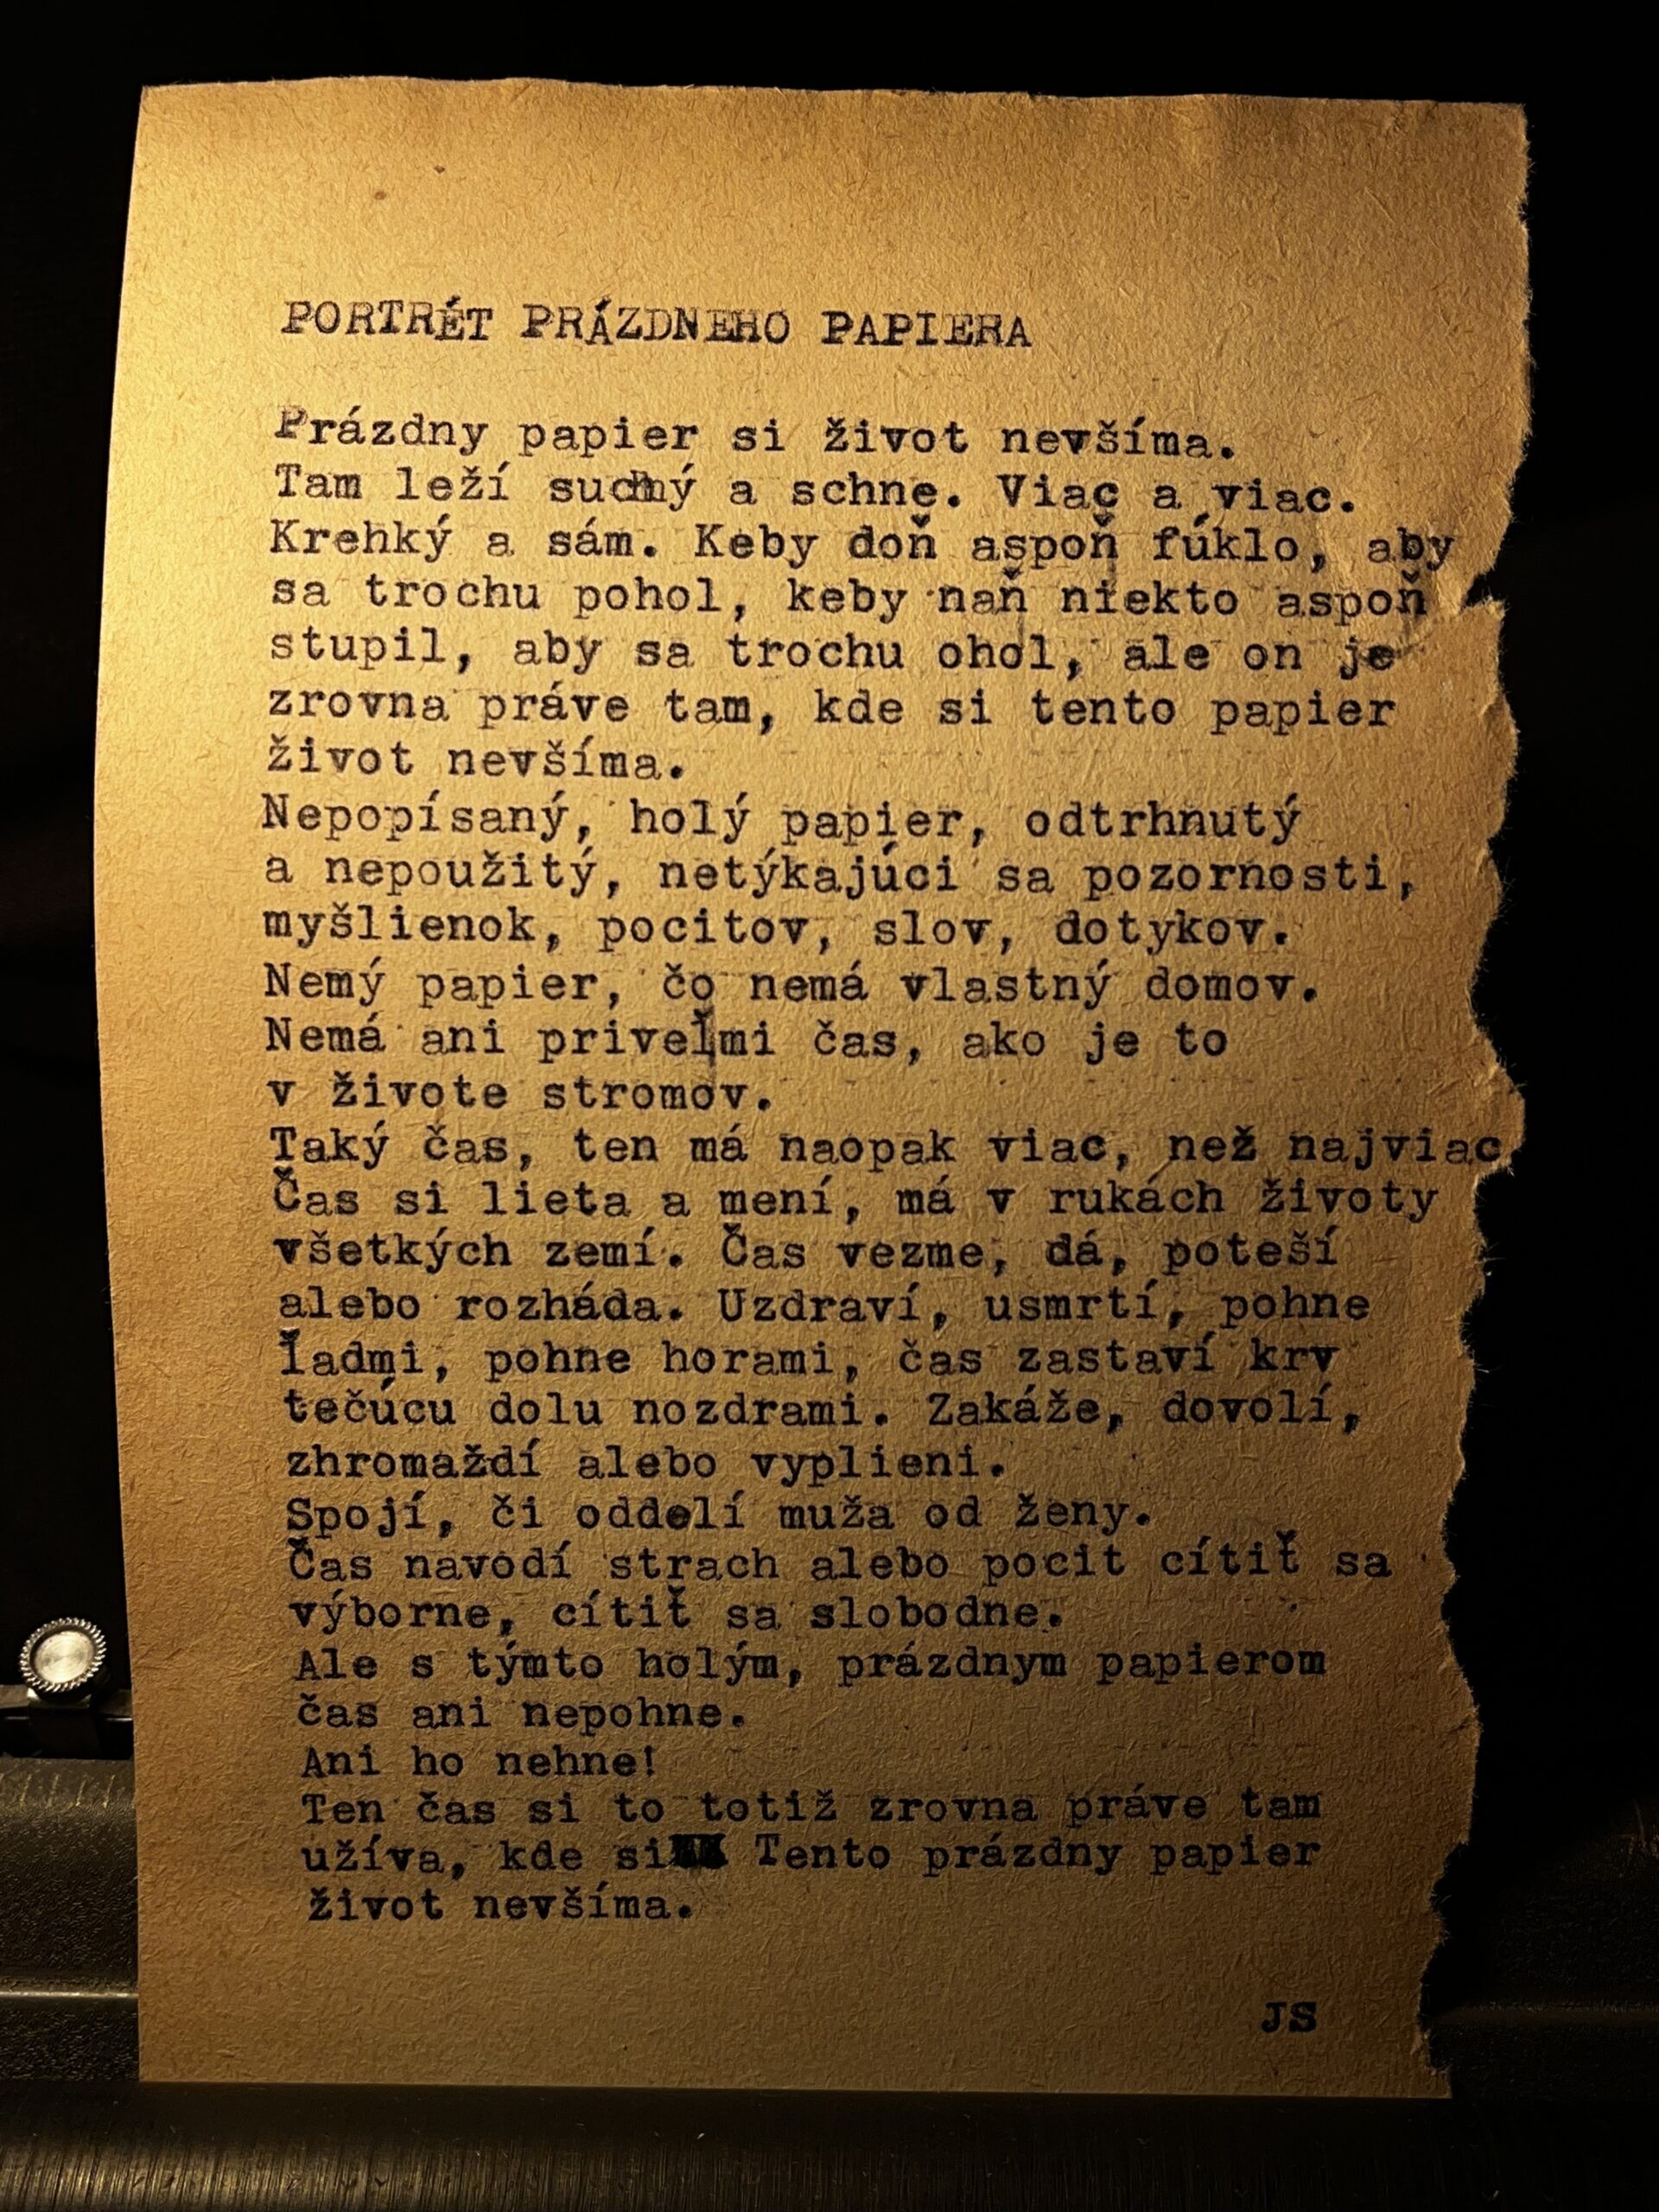 PORTRÉT PRÁZDNEHO PAPIERA
Prázdny papier si život nevšíma.
Tam leží suchý a schne. Viac a viac.
Krehký a sám. Keby doň aspoň fúklo, aby
sa trochu pohol, keby naň niekto aspoň
stupil, aby sa trochu ohol, ale on je
zrovna práve tam, kde si tento papier
život nevšíma.
Nepopísaný, holý papier, odtrhnutý
a nepoužitý, netýkajúci sa pozornosti,
myšlienok, pocitov, slov, dotykov.
Nemý papier, čo nemá vlastný domov.
Nemá ani priveľmi čas, ako je to
v živote stromov.
Taký čas, ten má naopak viac, než najviac.
Čas si lieta a mení, má v rukách životy
všetkých zemí. Čas vezme, dá, poteší
alebo rozháda. Uzdraví, usmrtí, pohne
ľadmi, pohne horami, čas zastaví krv
tečúcu dolu nozdrami. Zakáže, dovolí,
zhromaždí alebo vyplieni.
Spojí, či oddelí muža od ženy.
Čas navodí strach alebo pocit cítiť sa
výborne, cítiť sa slobodne.
Ale s týmto holým, prázdnym papierom
čas ani nepohne.
Ani ho nehne!
Ten čas si to totiž zrovna práve tam
užíva, kde si Tento prázdny papier
život nevšíma.
JS